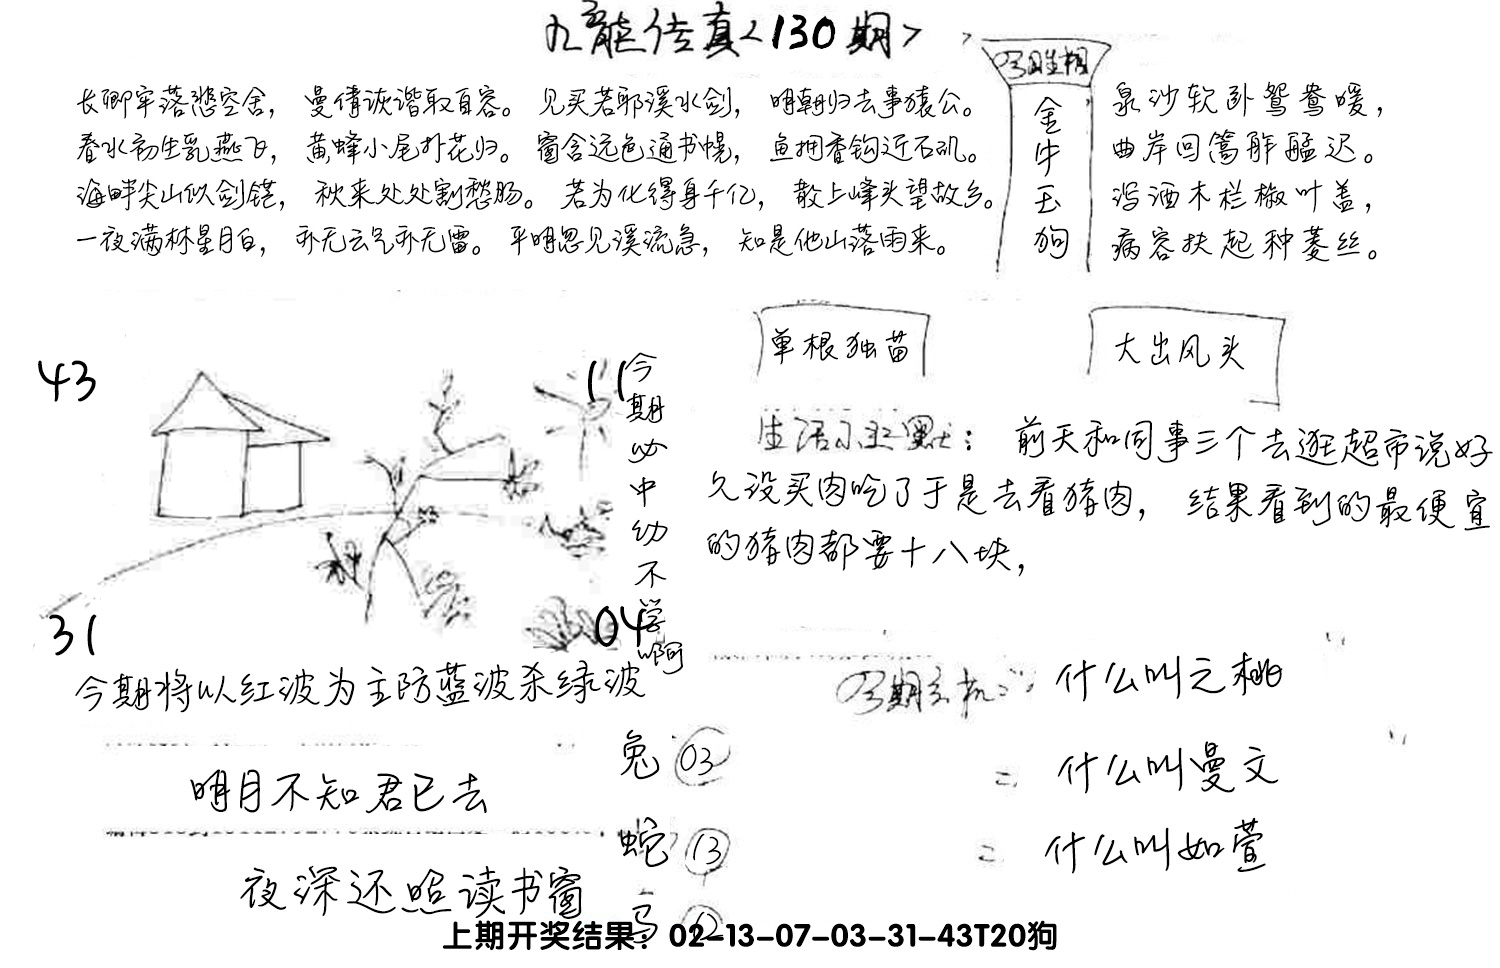 九龙传真<130期>
长卿牢落悲空舍，曼倩诙谐取自容。见买若耶溪水剑，明朝归去事猿公。
春水初生乳燕飞，黄蜂小尾扑花归。窗含远色通书幌，鱼拥香钩近石矶。
海畔尖山似剑铓，秋来处处割愁肠。若为化得身千亿，散上峰头望故乡。
一夜满林星月白，亦无云气亦无雷。平明忽见溪流急，知是他山落雨来。
金牛玉狗
泉沙软卧鸳鸯暖，
曲岸回篙舴艋迟。
泻酒木栏椒叶盖，
病容扶起种菱丝。
单根独苗
大出风头
43
11
31
04
今期必中幼不学啊
生活小幽默：前天和同事三个去逛超市说好
久没买肉吃了于是去看猪肉，结果看到的最便宜
的猪肉都要十八块，
今期将以红波为主防蓝波杀绿波
明月不知君已去
夜深还照读书窗
兔03
蛇13
马12
今期玄机
一：什么叫元桃
二 什么叫曼文
二 什么叫如萱
上期开奖结果：02-13-07-03-31-43T20狗